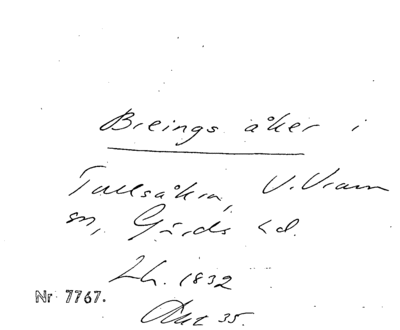 Breings åker i
Tullsåkra, V. Vram
sn, Gärds hd.
Lh. 1832
Akt 35.
Nr 7767.